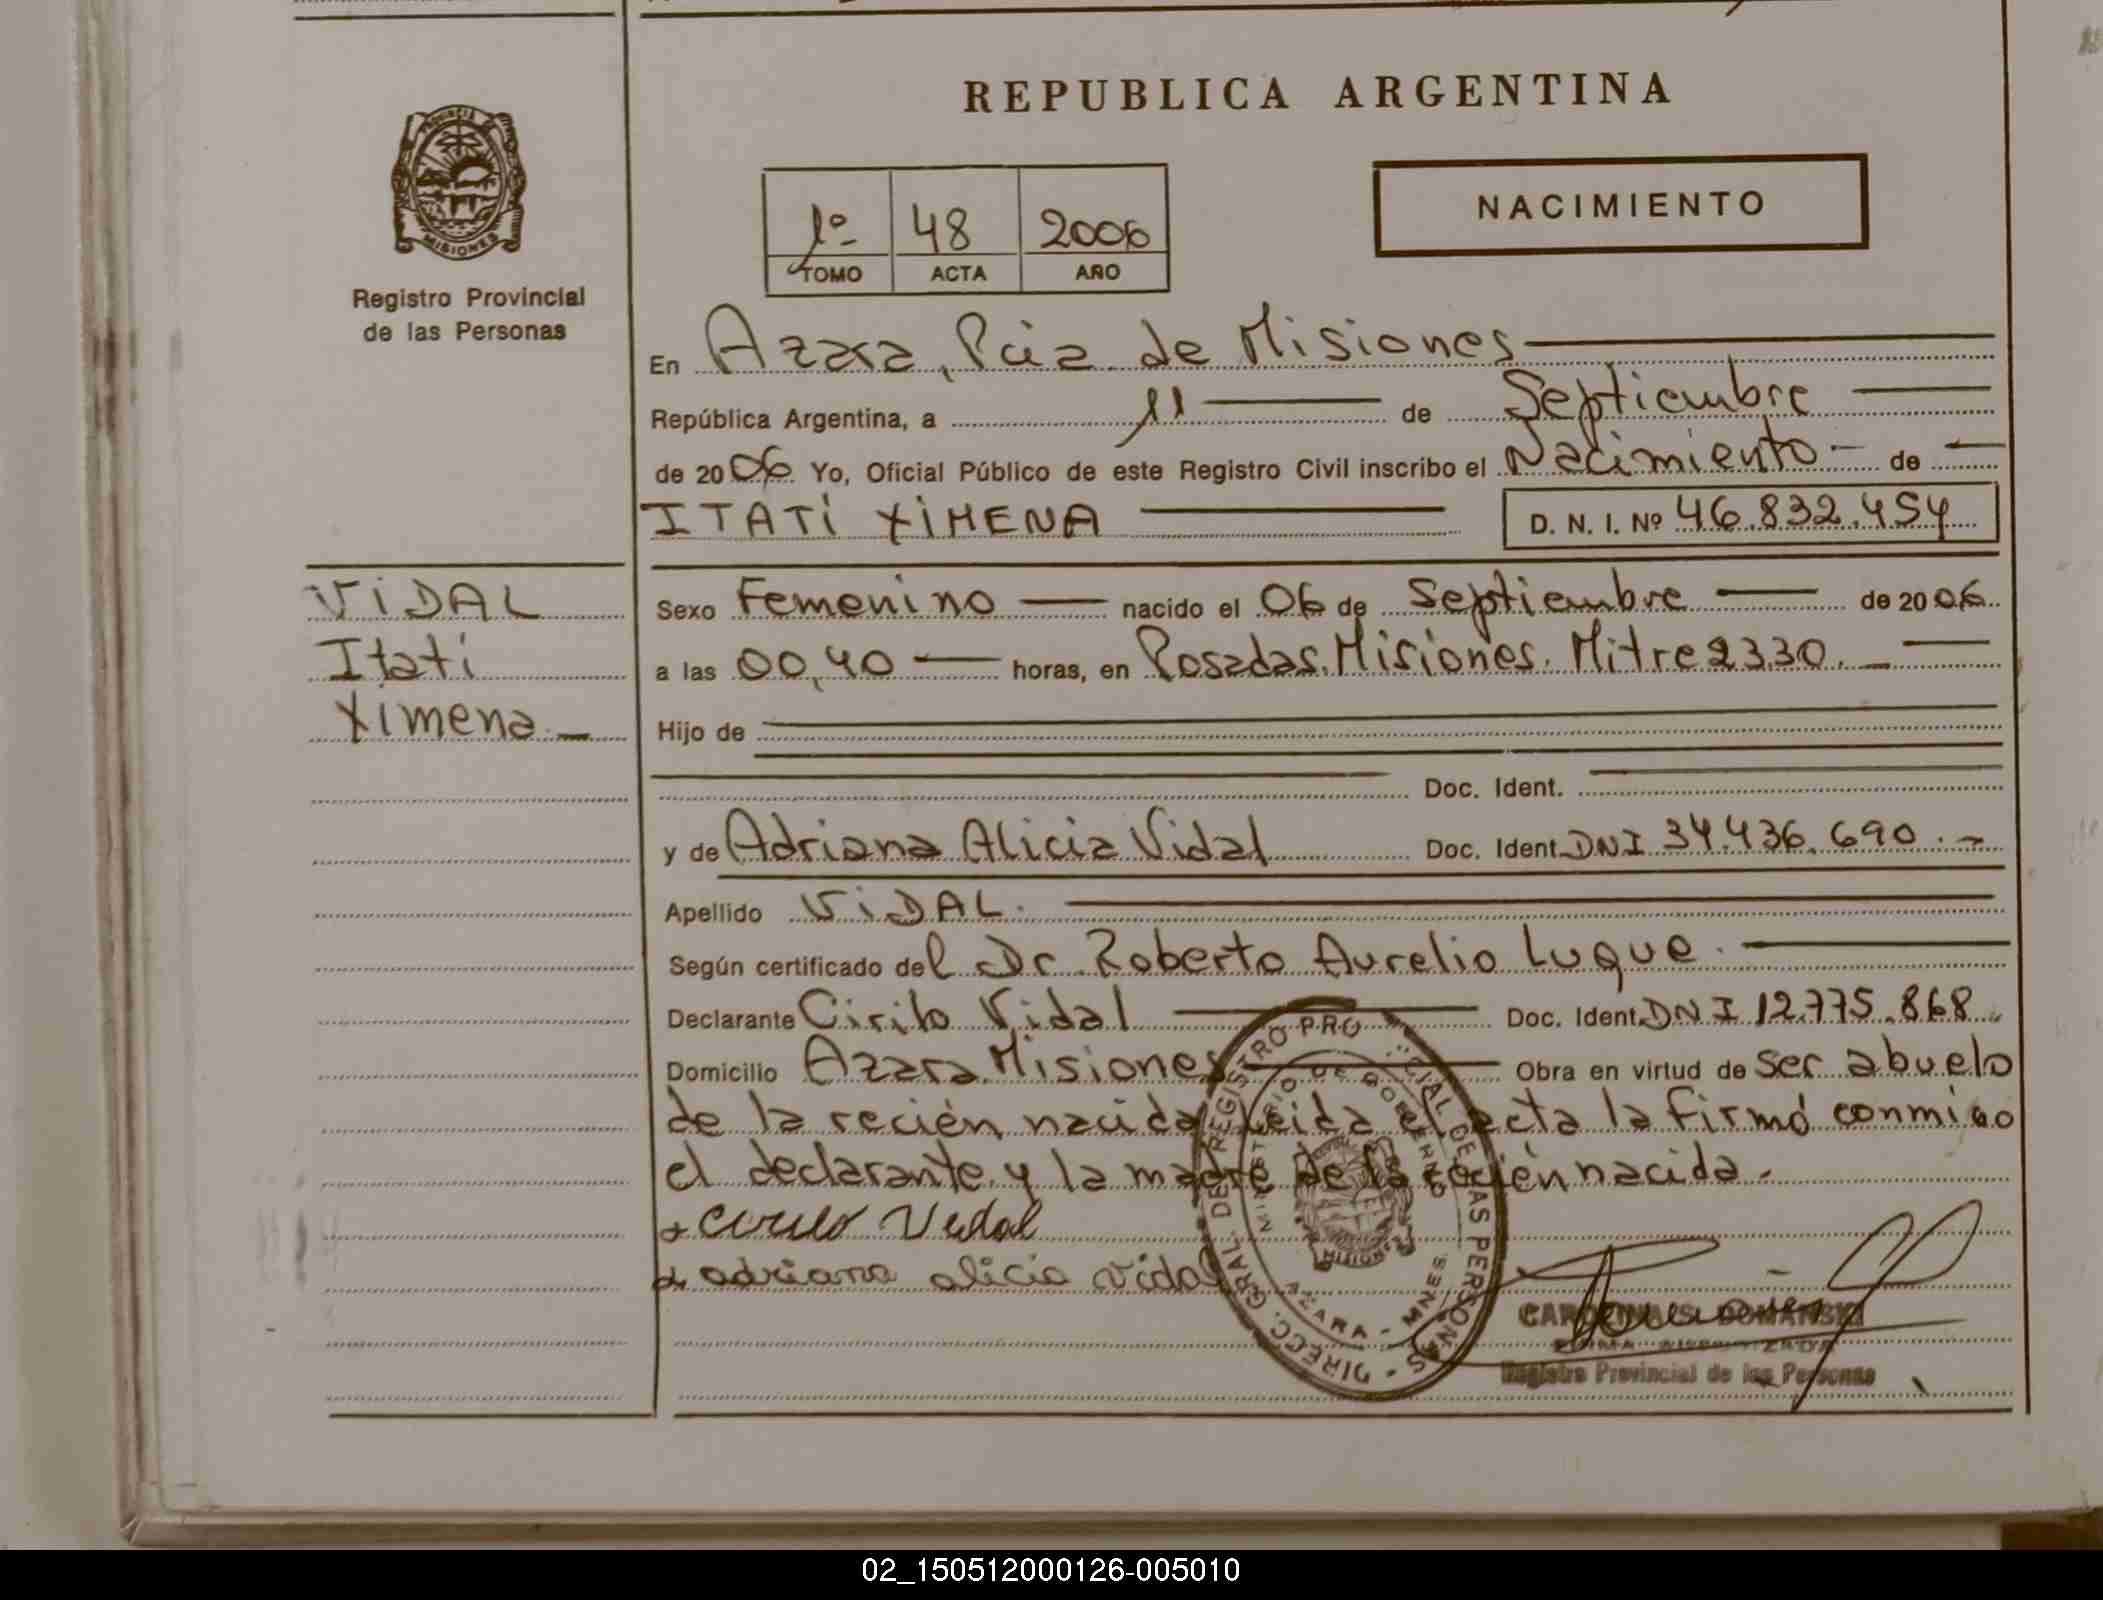 REPUBLICA ARGENTINA
PROVINCIA DE
MISIONES
Registro Provincial
de las Personas
1º 48 2006
TOMO ACTA AÑO
NACIMIENTO
En Azara, Pcia de Misiones
República Argentina, a 11 de Septiembre
de 2006 Yo, Oficial Público de este Registro Civil inscribo el Nacimiento de
ITATÍ XIMENA D. N. I. Nº 46.832.454
VIDAL
Itatí
Ximena
Sexo Femenino nacido el 06 de Septiembre de 2006
a las 00,40 horas, en Posadas. Misiones. Mitre 2330.
Hijo de
Doc. Ident.
y de Adriana Alicia Vidal Doc. Ident. DNI 34.436.690.
Apellido VIDAL.
Según certificado del Dr Roberto Aurelio Luque.
Declarante Cirilo Vidal Doc. Ident. DNI 12.775.868
Domicilio Azara Misiones Obra en virtud de ser abuelo
de la recién nacida Leida el acta la firmó conmigo
el declarante y la madre de la recién nacida.
Cirilo Vidal
adriana alicia vidal
DIRECC. GRAL. DE REGISTRO PROVINCIAL DE LAS PERSONAS
MINISTERIO DE GOBIERNO
MISIONES
AZARA - MNES.
CAROLINA S. DOMANSKI
FIRMA AUTORIZADA
Registro Provincial de las Personas
02_150512000126-005010